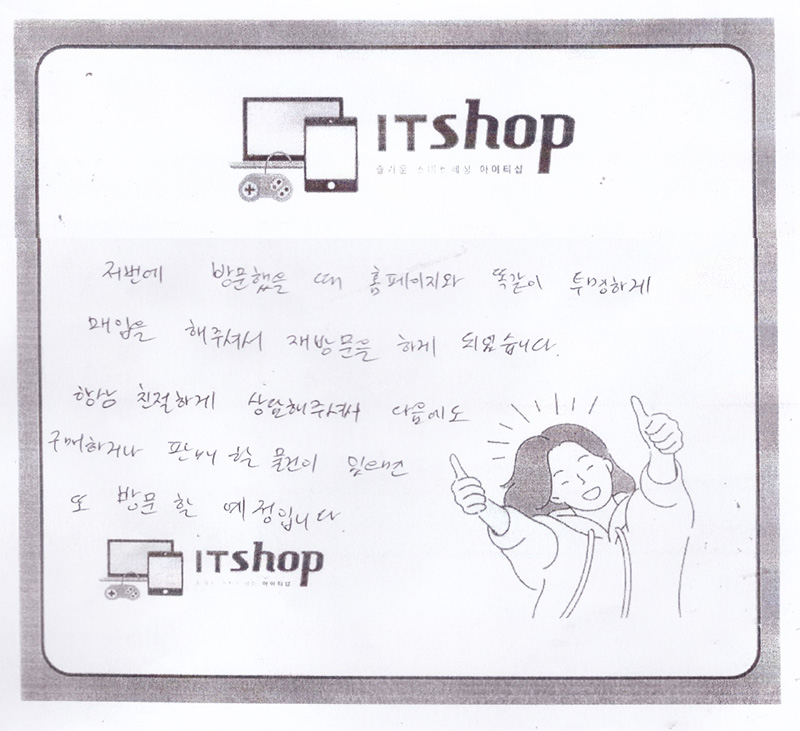 ITshop
즐거운 스마트세상 아이티샵
저번에 방문했을 때 홈페이지와 똑같이 투명하게
매입을 해주셔서 재방문을 하게 되었습니다.
항상 친절하게 상담해주셔서 다음에도
구매하거나 판매 할 물건이 있으면
또 방문 할 예정입니다.
ITshop
아이티샵